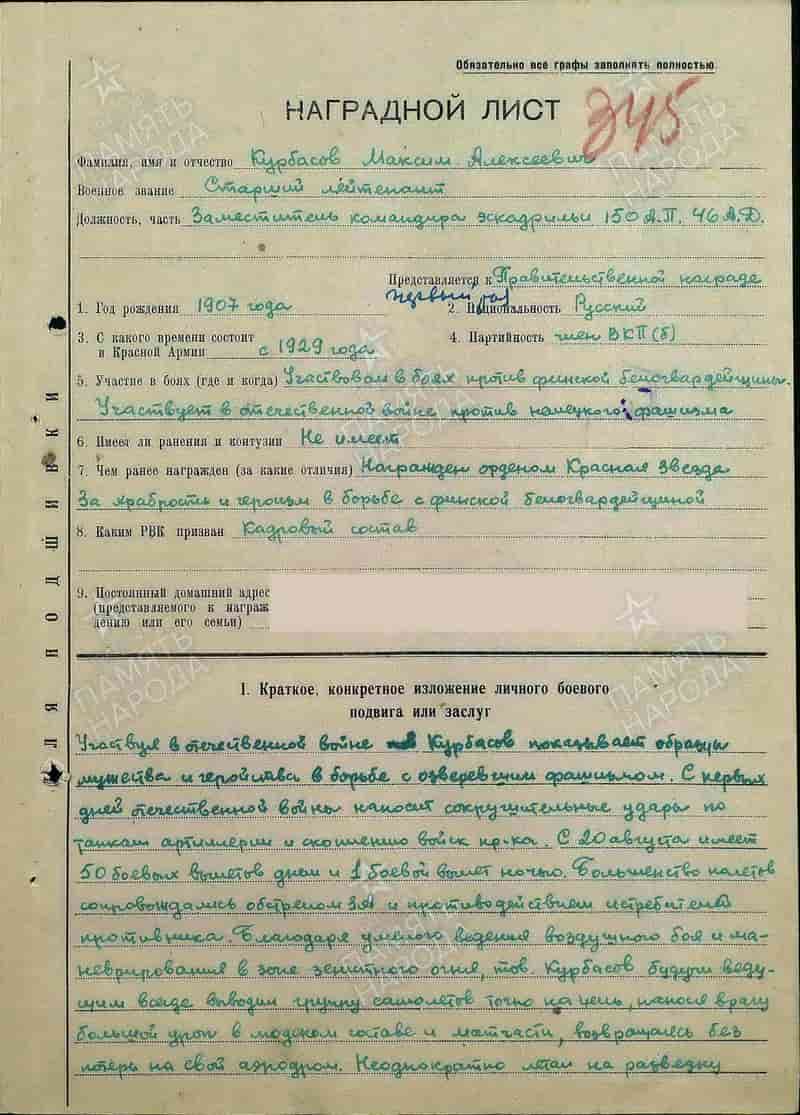 Обязательно все графы заполнять полностью
НАГРАДНОЙ ЛИСТ
345
Фамилия, имя и отчество Курбасов Максим Алексеевич
Военное звание Старший лейтенант
Должность, часть Заместитель командира эскадрильи 150 А.П. 46 А.Д.
Представляется к Правительственной награде
первый раз
1. Год рождения 1907 года 2. Национальность Русский
3. С какого времени состоит в Красной Армии с 1929 года 4. Партийность член ВКП(б)
5. Участие в боях (где и когда) Участвовал в боях против финской белогвардейщины.
Участвует в отечественной войне против немецкого фашизма
6. Имеет ли ранения и контузии Не имеет
7. Чем ранее награжден (за какие отличия) Награжден орденом Красная Звезда
За храбрость и героизм в борьбе с финской белогвардейщиной
8. Каким РВК призван Кадровый состав
9. Постоянный домашний адрес
(представляемого к награж
дению или его семьи)
ЛЯ ПОДШИВКИ
1. Краткое, конкретное изложение личного боевого
подвига или заслуг
Участвуя в отечественной войне Курбасов показывает образцы
мужества и геройства в борьбе с озверевшим фашизмом. С первых
дней отечественной войны наносит сокрушительные удары по
танкам артиллерии и скоплению войск пр-ка. С 20 августа имеет
50 боевых вылетов днем и 1 боевой вылет ночью. Большенство налетов
сопровождались обстрелом ЗА и противодействием истребителей
противника. Благодаря умелого ведения воздушного боя и ма-
неврирования в зоне зенитного огня, тов. Курбасов будучи веду-
щим всегда выводил группу самолетов точно на цель, нанося врагу
большой урон в людском составе и матчасти, возвращаясь без
потерь на свой аэродром. Неоднократно летал на разведку
ПАМЯТЬ НАРОДА
ПАМЯТЬ НАРОДА
ПАМЯТЬ НАРОДА
ПАМЯТЬ НАРОДА
ПАМЯТЬ НАРОДА
ПАМЯТЬ НАРОДА